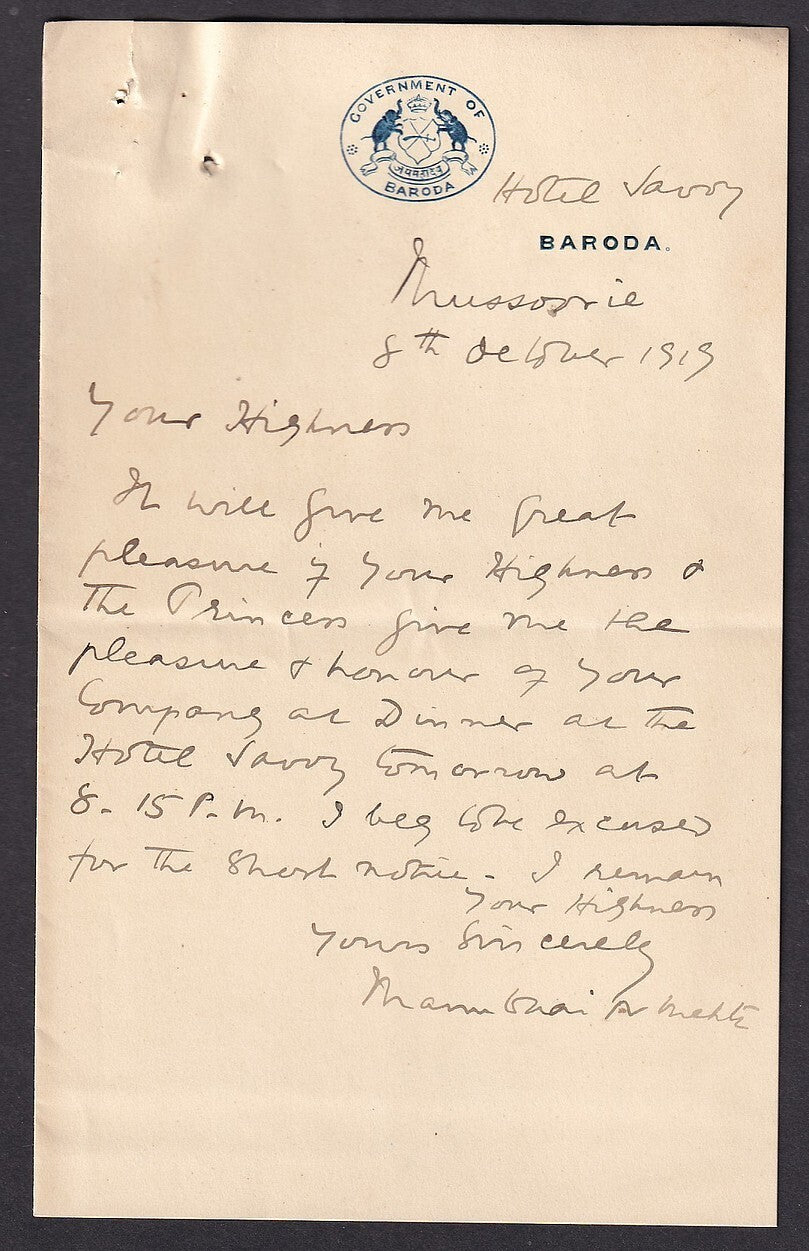 GOVERNMENT OF
BARODA
Hotel Savoy
BARODA.
Mussoorie
8th October 1919
Your Highness
It will give me great
pleasure if Your Highness &
the Princess give me the
pleasure & honour of Your
Company at Dinner at the
Hotel Savoy tomorrow at
8-15 P.m. I beg to be excused
for the short notice - I remain
Your Highness
Yours Sincerely
Manubhai N Mehta